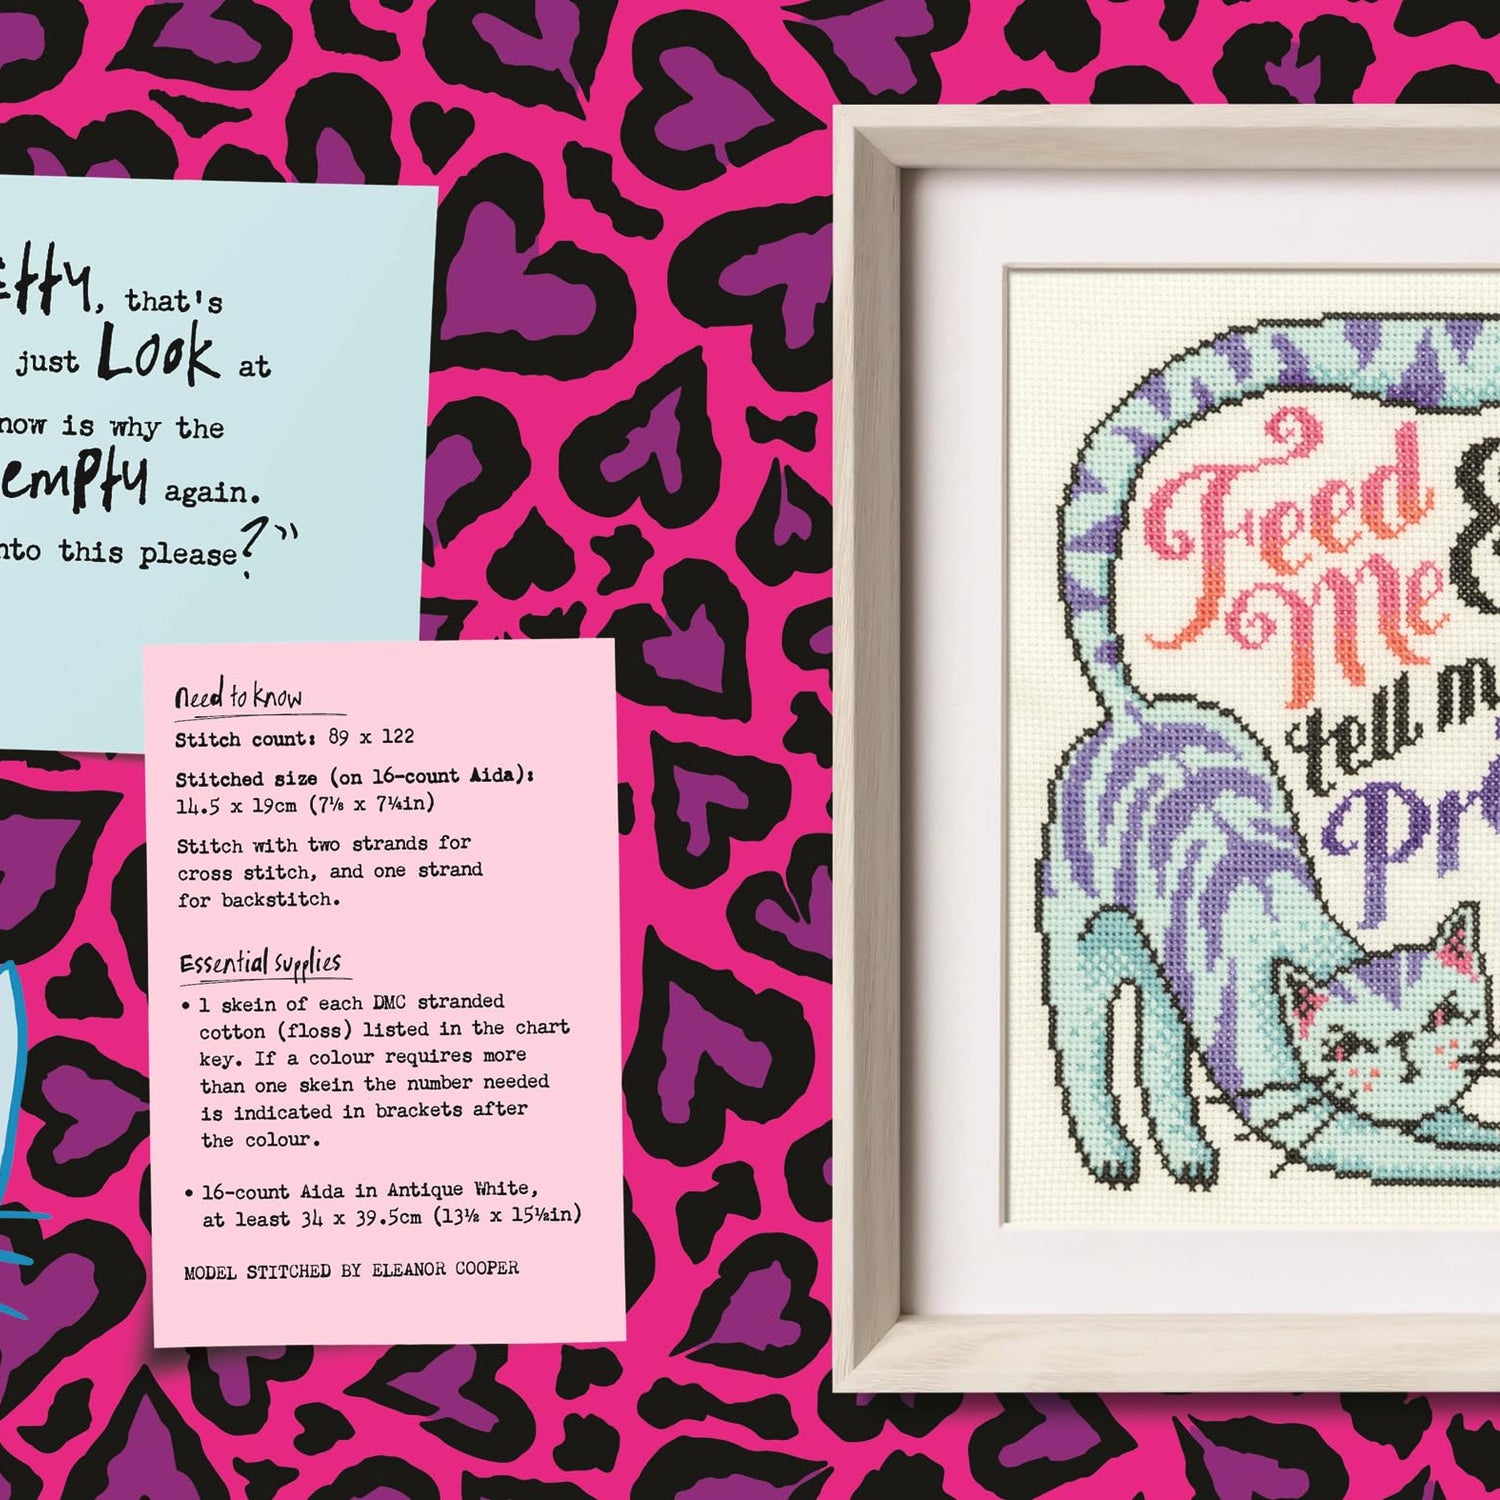 tty, that's
just Look at
now is why the
empty again.
nto this please?”
need to know
Stitch count: 89 x 122
Stitched size (on 16-count Aida):
14.5 x 19cm (7⅛ x 7¼in)
Stitch with two strands for
cross stitch, and one strand
for backstitch.
Essential supplies
• 1 skein of each DMC stranded
cotton (floss) listed in the chart
key. If a colour requires more
than one skein the number needed
is indicated in brackets after
the colour.
• 16-count Aida in Antique White,
at least 34 x 39.5cm (13½ x 15½in)
MODEL STITCHED BY ELEANOR COOPER
Feed &
Me
tell m
Pr